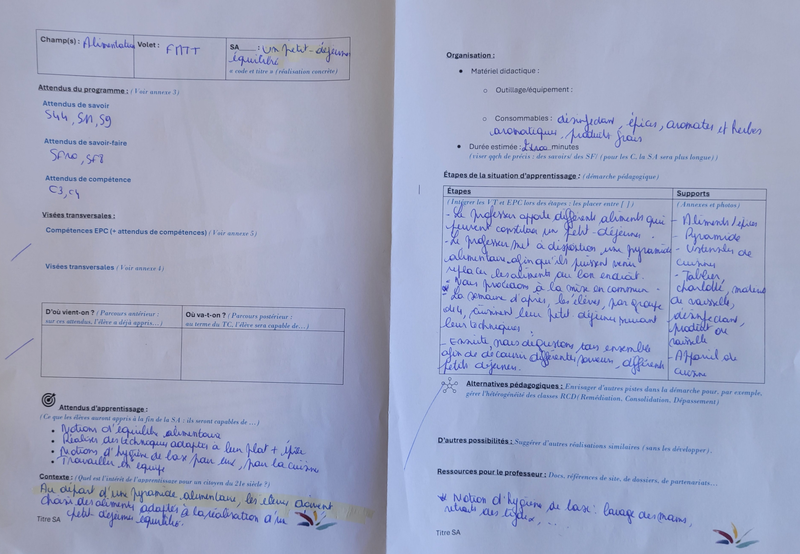 Champ(s) : Alimentation
Volet : FMTT
SA____ : Un petit-déjeuner
équilibré
« code et titre » (réalisation concrète)
Attendus du programme : (Voir annexe 3)
Attendus de savoir
S44, S11, S9
Attendus de savoir-faire
SF10, SF8
Attendus de compétence
C3, C4
Visées transversales :
Compétences EPC (+ attendus de compétences) (Voir annexe 5)
Visées transversales (Voir annexe 4)
D'où vient-on ? (Parcours antérieur :
sur ces attendus, l'élève a déjà appris…)
Où va-t-on ? (Parcours postérieur :
au terme du TC, l'élève sera capable de…)
Attendus d'apprentissage :
(Ce que les élèves auront appris à la fin de la SA : ils seront capables de …)
• Notions d'équilibre alimentaire
• Réaliser des techniques adaptés à leur plat + épice
• Notions d'hygiène de base pour eux, pour la cuisine
• Travailler en équipe
Contexte : (Quel est l'intérêt de l'apprentissage pour un citoyen du 21e siècle ?)
Au départ d'une pyramide alimentaire, les élèves doivent
choisir des aliments adaptés à la réalisation d'un
petit déjeuner équilibré.
Titre SA
Organisation :
• Matériel didactique :
o Outillage/équipement :
o Consommables : désinfectant, épices, aromates et herbes
aromatiques, produits frais
• Durée estimée : minutes
(viser qqch de précis : des savoirs/ des SF/ (pour les C, la SA sera plus longue))
Étapes de la situation d'apprentissage : (démarche pédagogique)
Étapes
Supports
(Intégrer les VT et EPC lors des étapes : les placer entre [ ])
(Annexes et photos)
- Le professeur apporte différents aliments qui
peuvent constituer un petit-déjeuner.
- Le professeur met à disposition une pyramide
alimentaire afin qu'ils puissent venir
replacer les aliments au bon endroit.
* Nous procédons à la mise en commun.
* La semaine d'après, les élèves, par groupe
de 4, cuisinent leur petit déjeuner suivant
leur techniques.
- Ensuite, nous dégustons tous ensemble
afin de découvrir différentes saveurs, différents
petits déjeuners.
- Aliments/épices
- Pyramide
- Ustensiles de
cuisine
- Tablier,
charlotte, matériel
de vaisselle,
désinfectant,
produit de
vaisselle
- Appareil de
cuisine
Alternatives pédagogiques : Envisager d'autres pistes dans la démarche pour, par exemple,
gérer l'hétérogénéité des classes RCD (Remédiation, Consolidation, Dépassement)
D'autres possibilités : Suggérer d'autres réalisations similaires (sans les développer).
Ressources pour le professeur : Docs, références de site, de dossiers, de partenariats…
* Notion d'hygiène de base : lavage des mains,
retrait des bijoux, ...
Titre SA